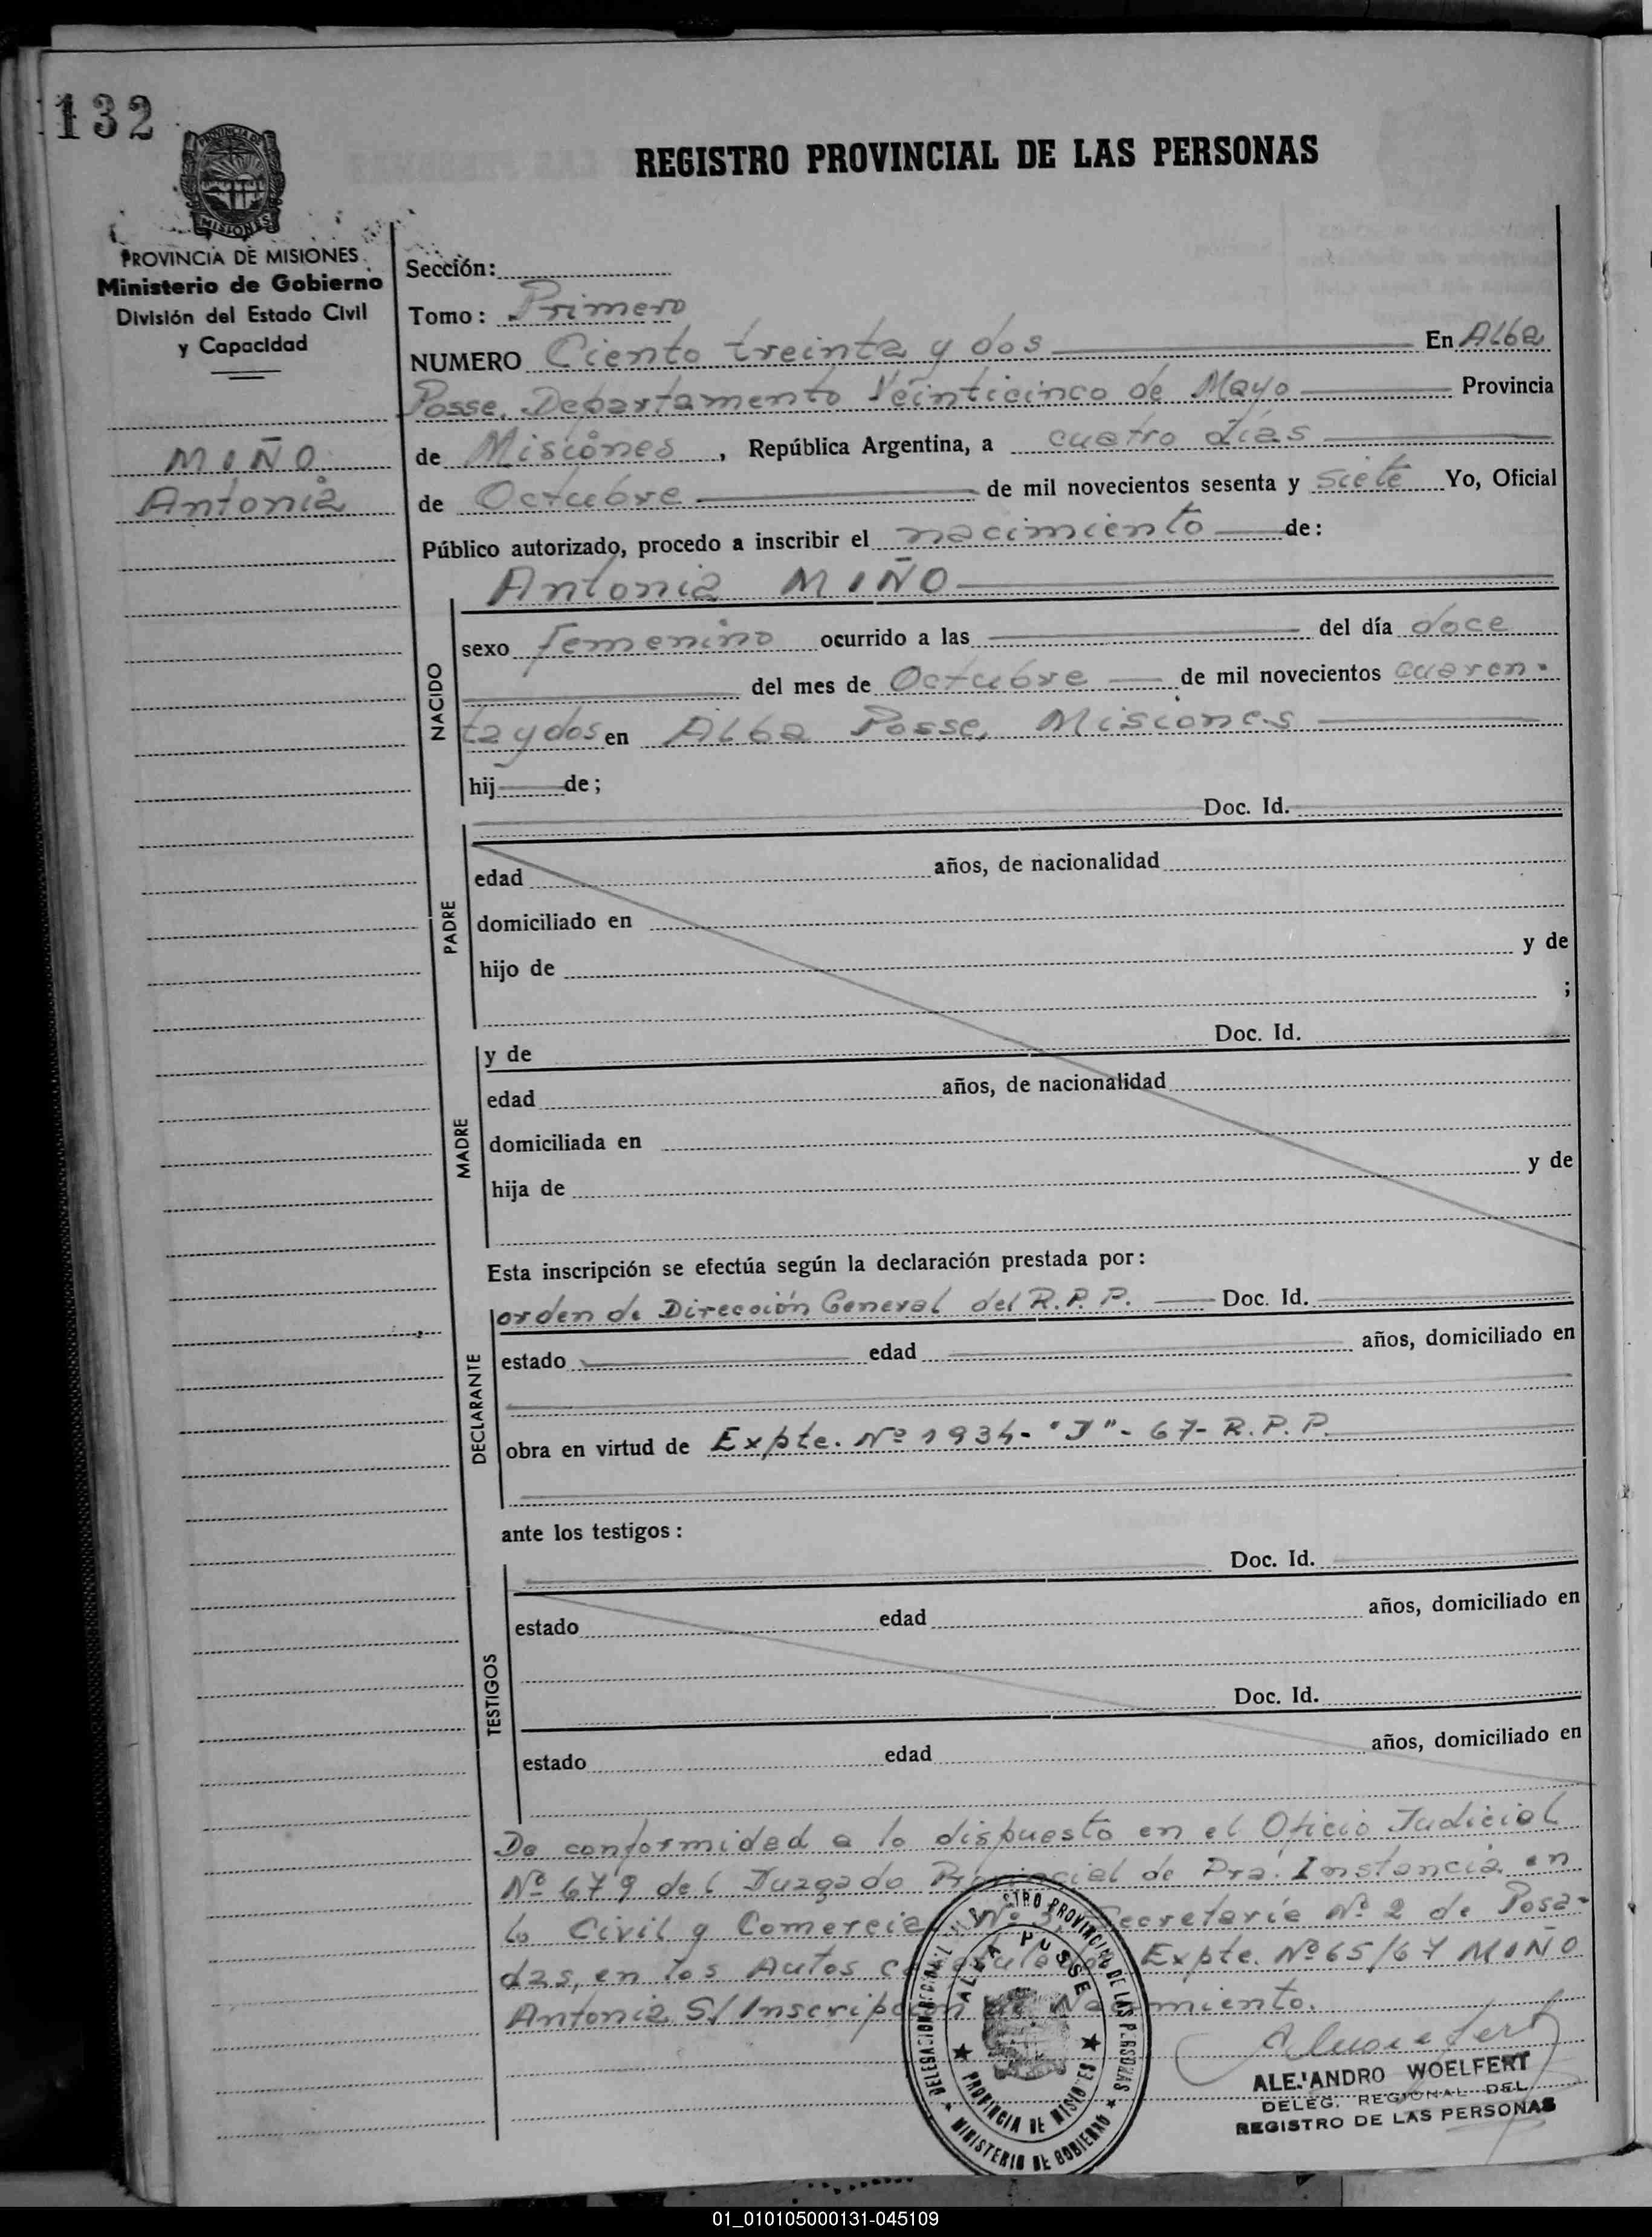 132
PROVINCIA DE
MISIONES
REGISTRO PROVINCIAL DE LAS PERSONAS
PROVINCIA DE MISIONES
Ministerio de Gobierno
División del Estado Civil
y Capacidad
MIÑO
Antonia
Sección:
Tomo: Primero
NUMERO Ciento treinta y dos En Alba
Posse, Departamento Veinticinco de Mayo Provincia
de Misiones, República Argentina, a cuatro días
de Octubre de mil novecientos sesenta y siete Yo, Oficial
Público autorizado, procedo a inscribir el nacimiento de:
Antonia MIÑO
NACIDO
sexo femenino ocurrido a las del día doce
del mes de Octubre de mil novecientos cuaren-
ta y dos en Alba Posse, Misiones
hij de;
Doc. Id.
PADRE
edad años, de nacionalidad
domiciliado en
hijo de y de
;
Doc. Id.
MADRE
y de
edad años, de nacionalidad
domiciliada en
hija de y de
Esta inscripción se efectúa según la declaración prestada por:
DECLARANTE
orden de Dirección General del R.P.P. Doc. Id.
estado edad años, domiciliado en
obra en virtud de Expte. Nº 1934-"J"-67-R.P.P.
ante los testigos:
Doc. Id.
TESTIGOS
estado edad años, domiciliado en
Doc. Id.
estado edad años, domiciliado en
De conformidad a lo dispuesto en el Oficio Judicial
Nº 679 del Juzgado Provincial de Pra. Instancia en
lo Civil y Comercial Nº 3, Secretaría Nº 2 de Posa-
das, en los Autos caratulados Expte. Nº 65/67 MIÑO
Antonia S/Inscripción de Nacimiento.
ALBA POSSE
PROVINCIA DE MISIONES
MINISTERIO DE GOBIERNO
ALEJANDRO WOELFERT
DELEG. REGIONAL DEL
REGISTRO DE LAS PERSONAS
01_010105000131-045109